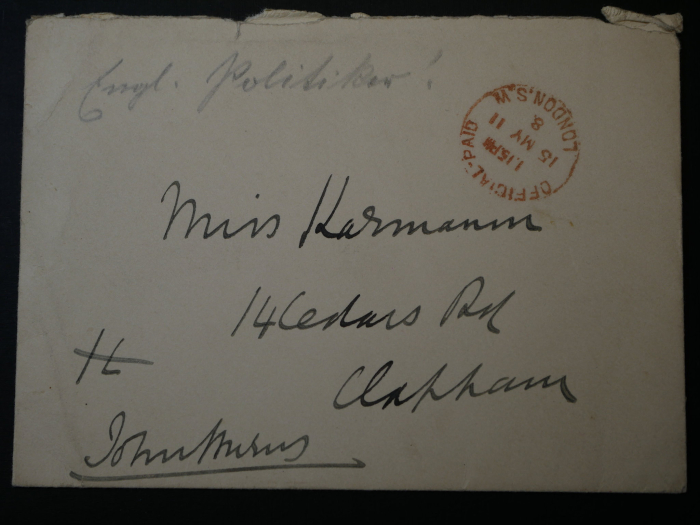 Engl. Politiker!
OFFICIAL-PAID
LONDON, S.W
1.15PM
15 MY 11
8
Miss Karmann
14 Cedars Rd
Clapham
John Burns